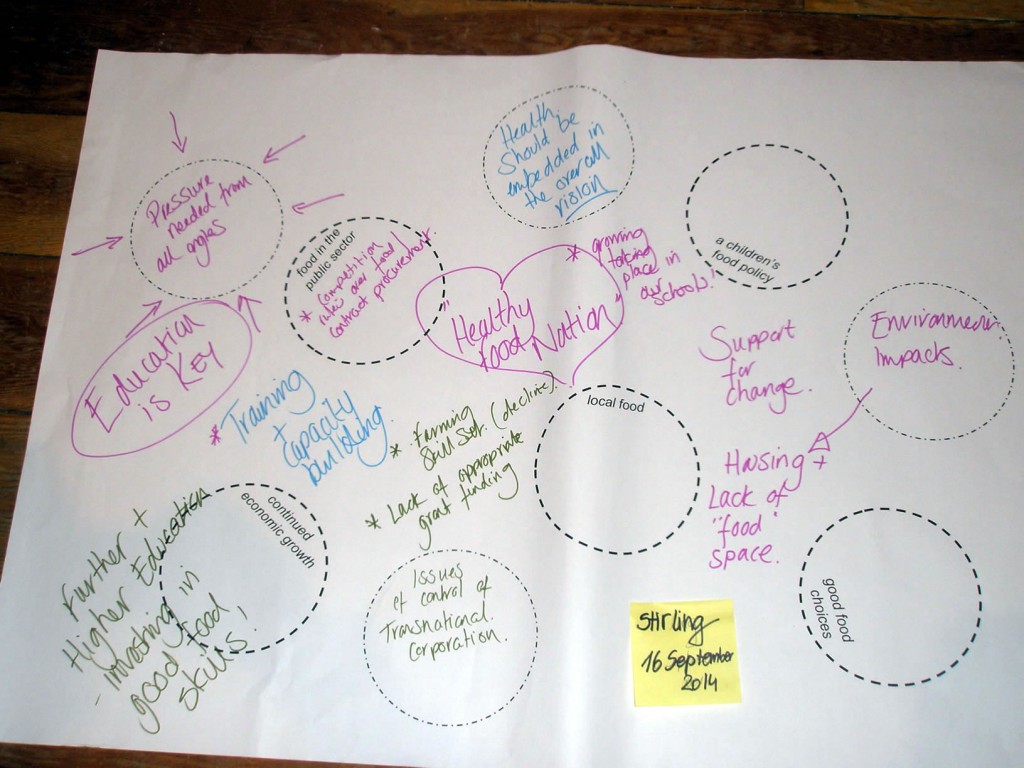 Health
should be
embedded in
the overall
vision
Pressure
needed from
all angles
food in the
public sector
* Competition
over food/
contract procurement.
"Healthy
food Nation"
* growing
taking
place in
our
schools!
a children's
food policy
Environment
Impacts.
Education
is KEY
* Training
+
Capacity
building.
* Farming
Skill Set (decline).
* Lack of appropriate
grant funding
local food
Support
for
change.
Housing +
Lack of
"food"
space.
good food
choices
continued
economic growth
Further +
Higher Education
- investing in
good food
skills!
Issues
of control of
Transnational
Corporation.
Stirling
16 September
2014